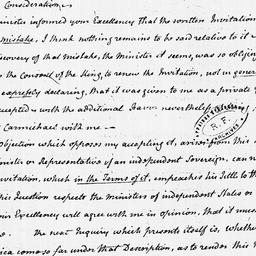 Consideration,
nister informed your Excellency that the written Invitation
mistake, I think nothing remains to be said relative to it
scovery of that mistake, the Minister it seems, was so obliging
the Consent of the King to renew the Invitation, not in gener
expressly declaring, that it was given to me as a private
ccepted with the additional Favor nevertheless
Carmichael with me —
bjection which opposes my accepting it, arises from this
inister or Representative of an independent Sovereign, cann
vitation, which in the Terms of it, impeaches his Title to th
his Question respects the Ministers of independent States or
our Excellency will agree with me in opinion, that it must
The next Enquiry which presents itself is, whether
ica comes so far under that Description, as to render this
R. F.